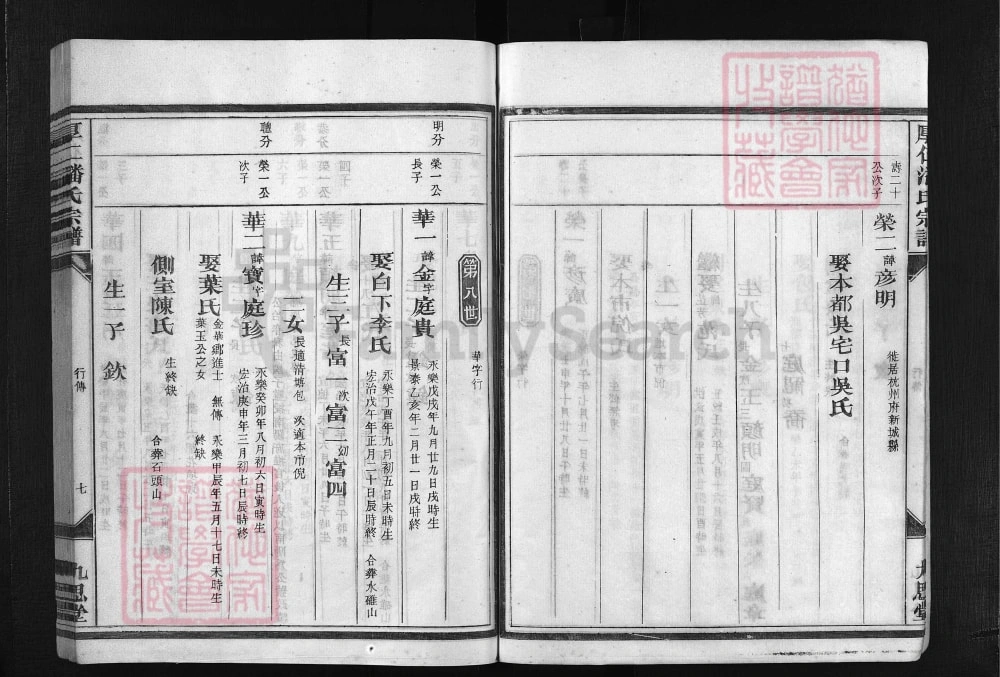 詩二十
公次子
榮二諱彦明
徙居杭州府新城縣
娶本都吳宅口吳氏
第八世
華字行
明分
榮一公
長子
華一諱金字庭貴
永樂戊戌年九月廿九日戌時生
景泰乙亥年二月廿一日戌時終
娶白下李氏
永樂丁酉年九月初五日未時生
宏治戊午年正月二十日辰時終
合葬水碓山
生三子長富一次富二幼富四
二女長適清塘包次適本市倪
聰分
榮一公
次子
華二諱寶字庭珍
永樂癸卯年八月初六日寅時生
宏治庚申年三月初七日辰時終
娶葉氏金華鄉進士葉玉公之女
無傳
永樂甲辰年五月十七日未時生
終缺
側室陳氏
生終缺
合葬石頭山
生一子
欽
潘氏宗譜
行傳
七
九思堂
厚仁潘氏宗譜
九思堂
FamilySearch